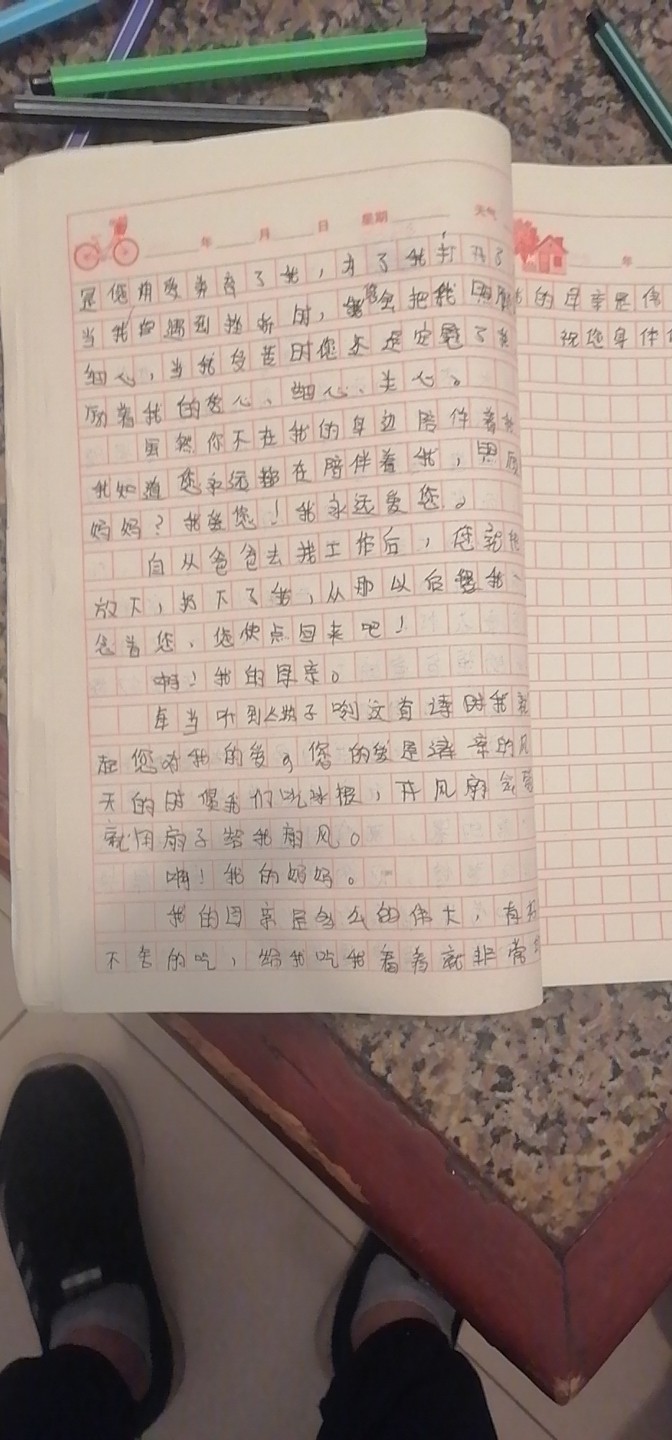 年 月 日 星期 天气
是您用爱养育了我，为了我打开了
当我遇到挫折时，您会把我
细心，当我受苦时您永远安慰了我
励着我的爱心、细心、关心。
虽然你不在我的身边陪伴着我
我知道您永远都在陪伴着我，
妈妈？我爱您！我永远爱您。
自从爸爸去找工作后，您就
放下，扔下了我，从那以后我一
念着您、您快点回来吧！
啊！我的母亲。
每当听到 这首诗时我就
起您对我的爱。您的爱是清凉的风
天的时候我们吃冰棍，开风扇
就用扇子给我扇风。
啊！我的妈妈。
我的母亲是多么的伟大，有
不舍的吃，给我吃我看着就非常
年
的母亲是伟
祝您身体